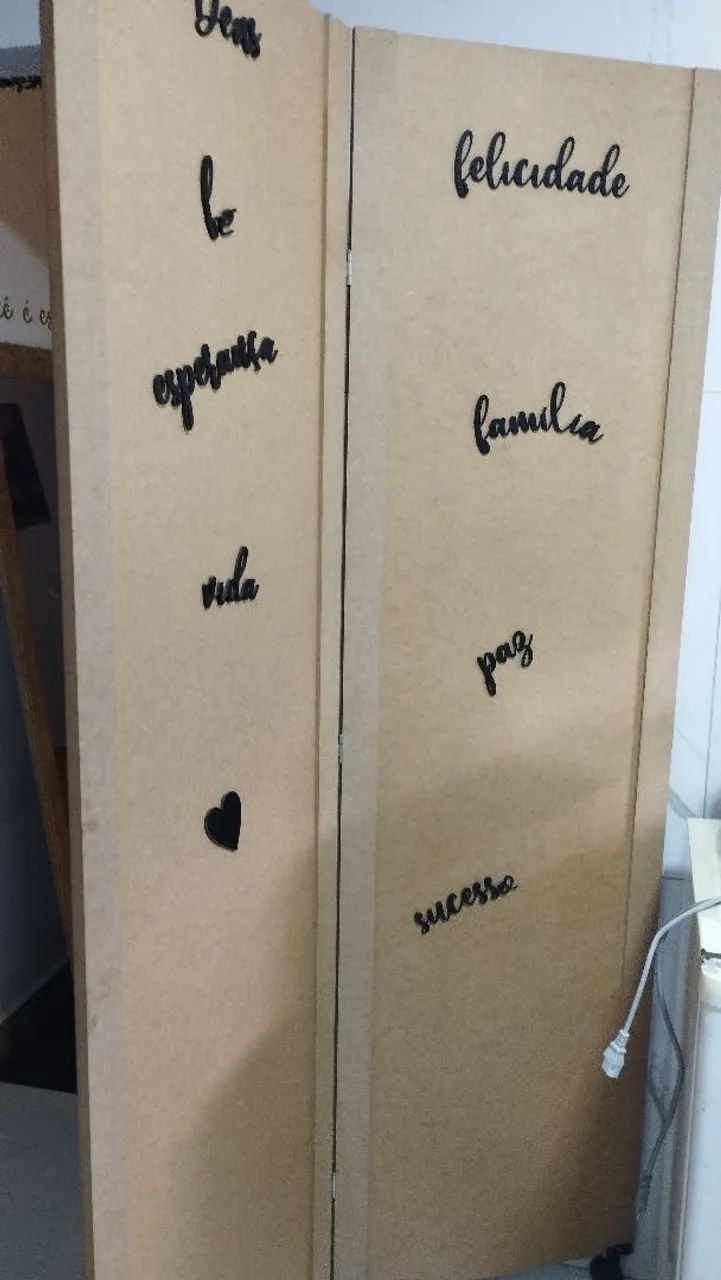 Deus
fé
esperança
vida
felicidade
família
paz
sucesso
ê é es